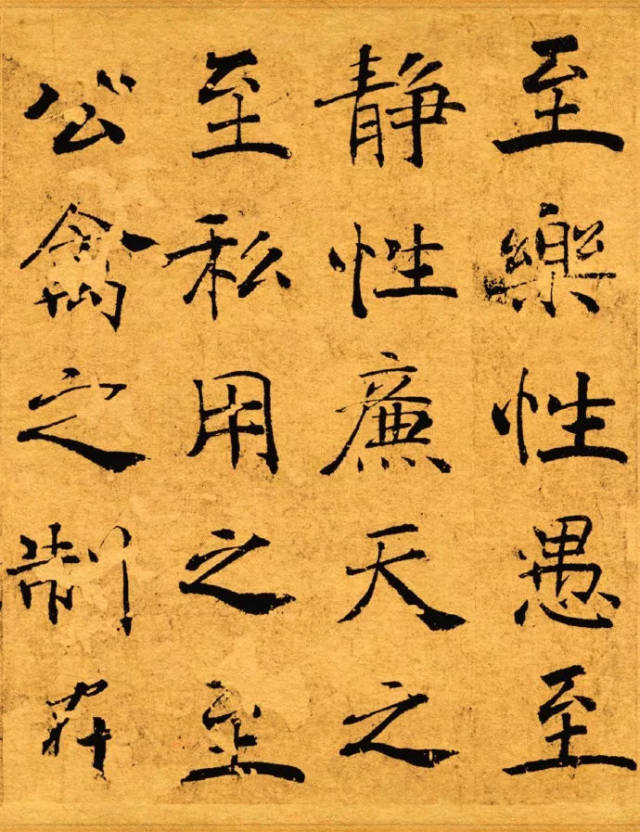 至樂性愚至
静性廉天之
至私用之至
公禽之制